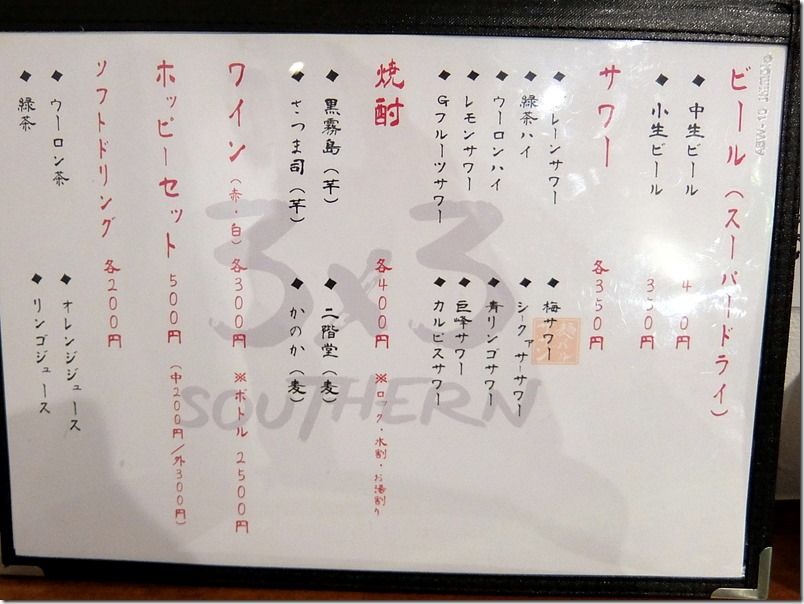 ビール（スーパードライ）
◆ 中生ビール
◆ 小生ビール 350円
サワー 各350円
レーンサワー ◆ 梅サワー
◆ 緑茶ハイ ◆ シークァーサーサワー
◆ ウーロンハイ ◆ 青リンゴサワー
◆ レモンサワー ◆ 巨峰サワー
◆ Gフルーツサワー ◆ カルピスサワー
焼酎 各400円 ※ロック・水割・お湯割り
◆ 黒霧島（芋） ◆ 二階堂（麦）
◆ さつま司（芋） ◆ かのか（麦）
ワイン（赤・白）各300円 ※ボトル 2500円
ホッピーセット 500円（中200円／外300円）
ソフトドリンク 各200円
◆ ウーロン茶 ◆ オレンジジュース
◆ 緑茶 ◆ リンゴジュース
3x3
SOUTHERN